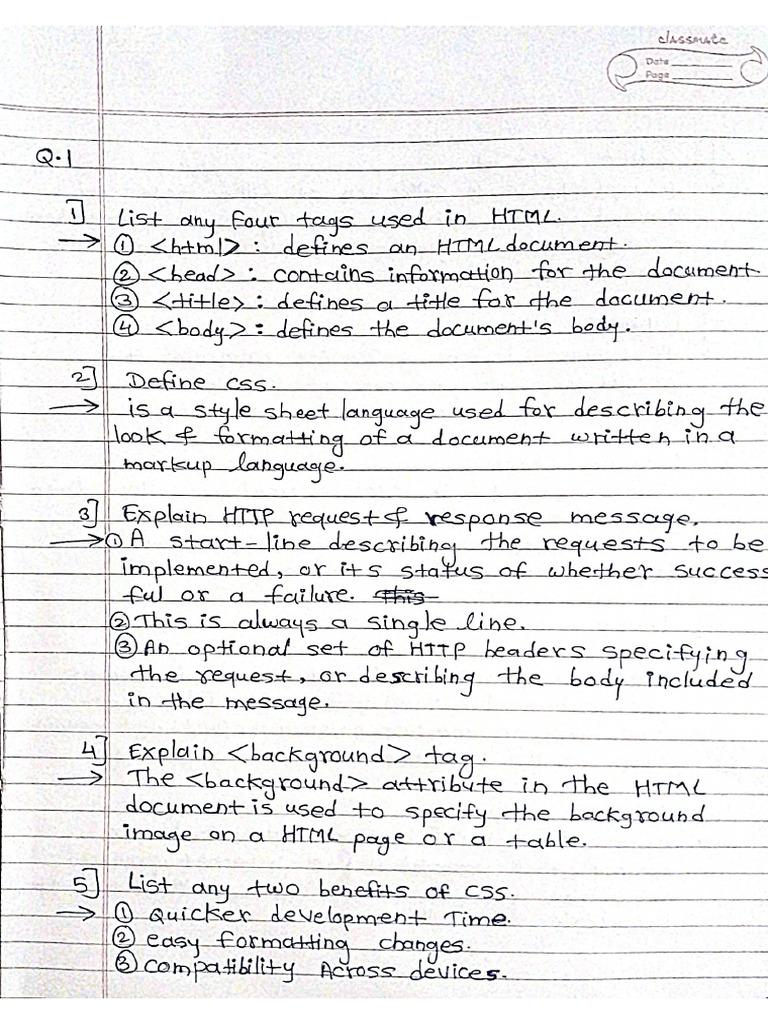 classmate
Date
Page
Q.1
1] List any four tags used in HTML.
→ ① <html> : defines an HTML document.
② <head> : contains information for the document
③ <title> : defines a title for the document.
④ <body> : defines the document's body.
2] Define css.
→ is a style sheet language used for describing the
look & formatting of a document written in a
markup language.
3] Explain HTTP request & response message.
→ ① A start-line describing the requests to be
implemented, or its status of whether success
ful or a failure. This
② This is always a single line.
③ An optional set of HTTP headers specifying
the request, or describing the body included
in the message.
4] Explain <background> tag.
→ The <background> attribute in the HTML
document is used to specify the background
image on a HTML page or a table.
5] List any two benefits of CSS.
→ ① Quicker development Time.
② easy formatting changes.
③ compatibility Across devices.